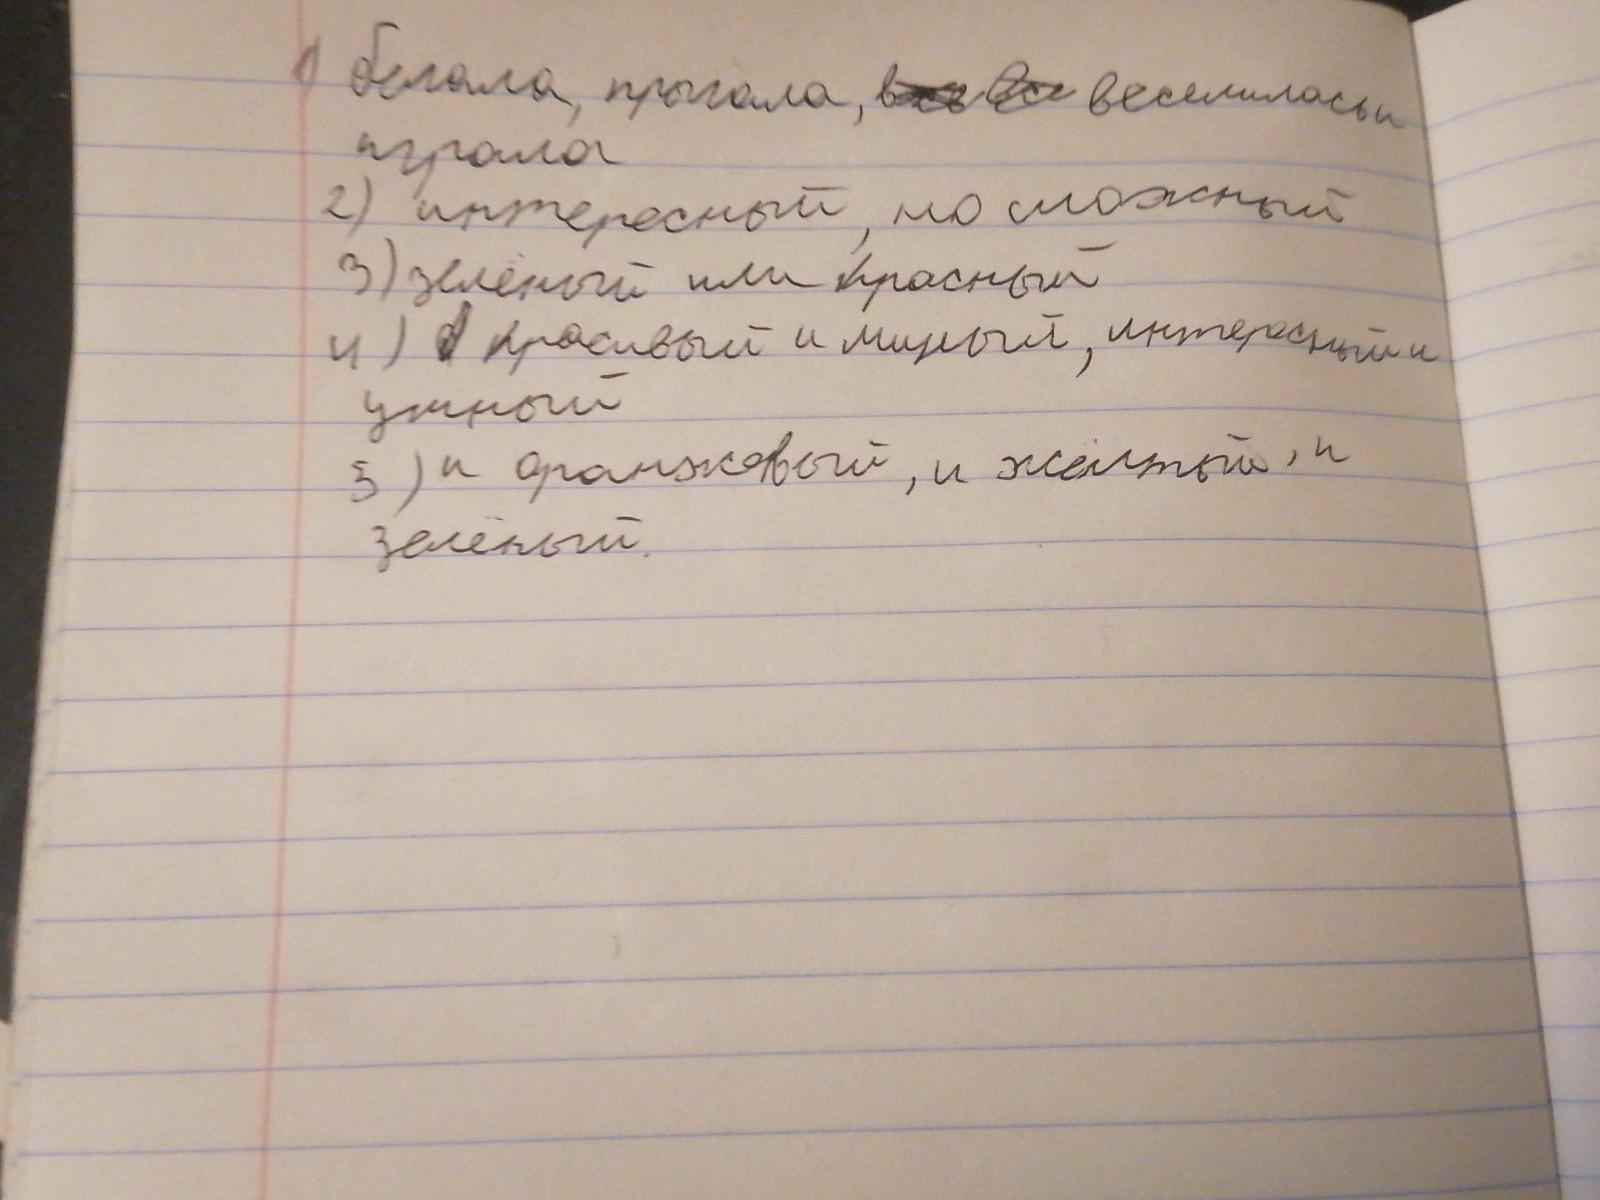 1) бегала, прыгала, веселилась и
играла
2) интересный, но сложный
3) зелёный или красный
4) красивый и милый, интересный и
умный
5) и оранжевый, и жёлтый, и
зелёный.